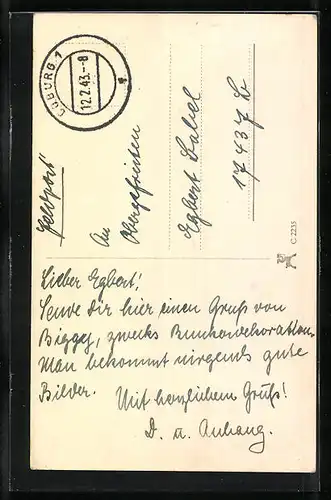 COBURG 1
12.2.43.-8
Feldpost
An
Obergefreiten
Egbert Sabel
17437 b
C 2235
Lieber Egbert!
Sende Dir hier einen Gruß von
zwecks Bunkerdekoration.
Man bekommt nirgends gute
Bilder. Mit herzlichem Gruß!
D. u. Anhang.